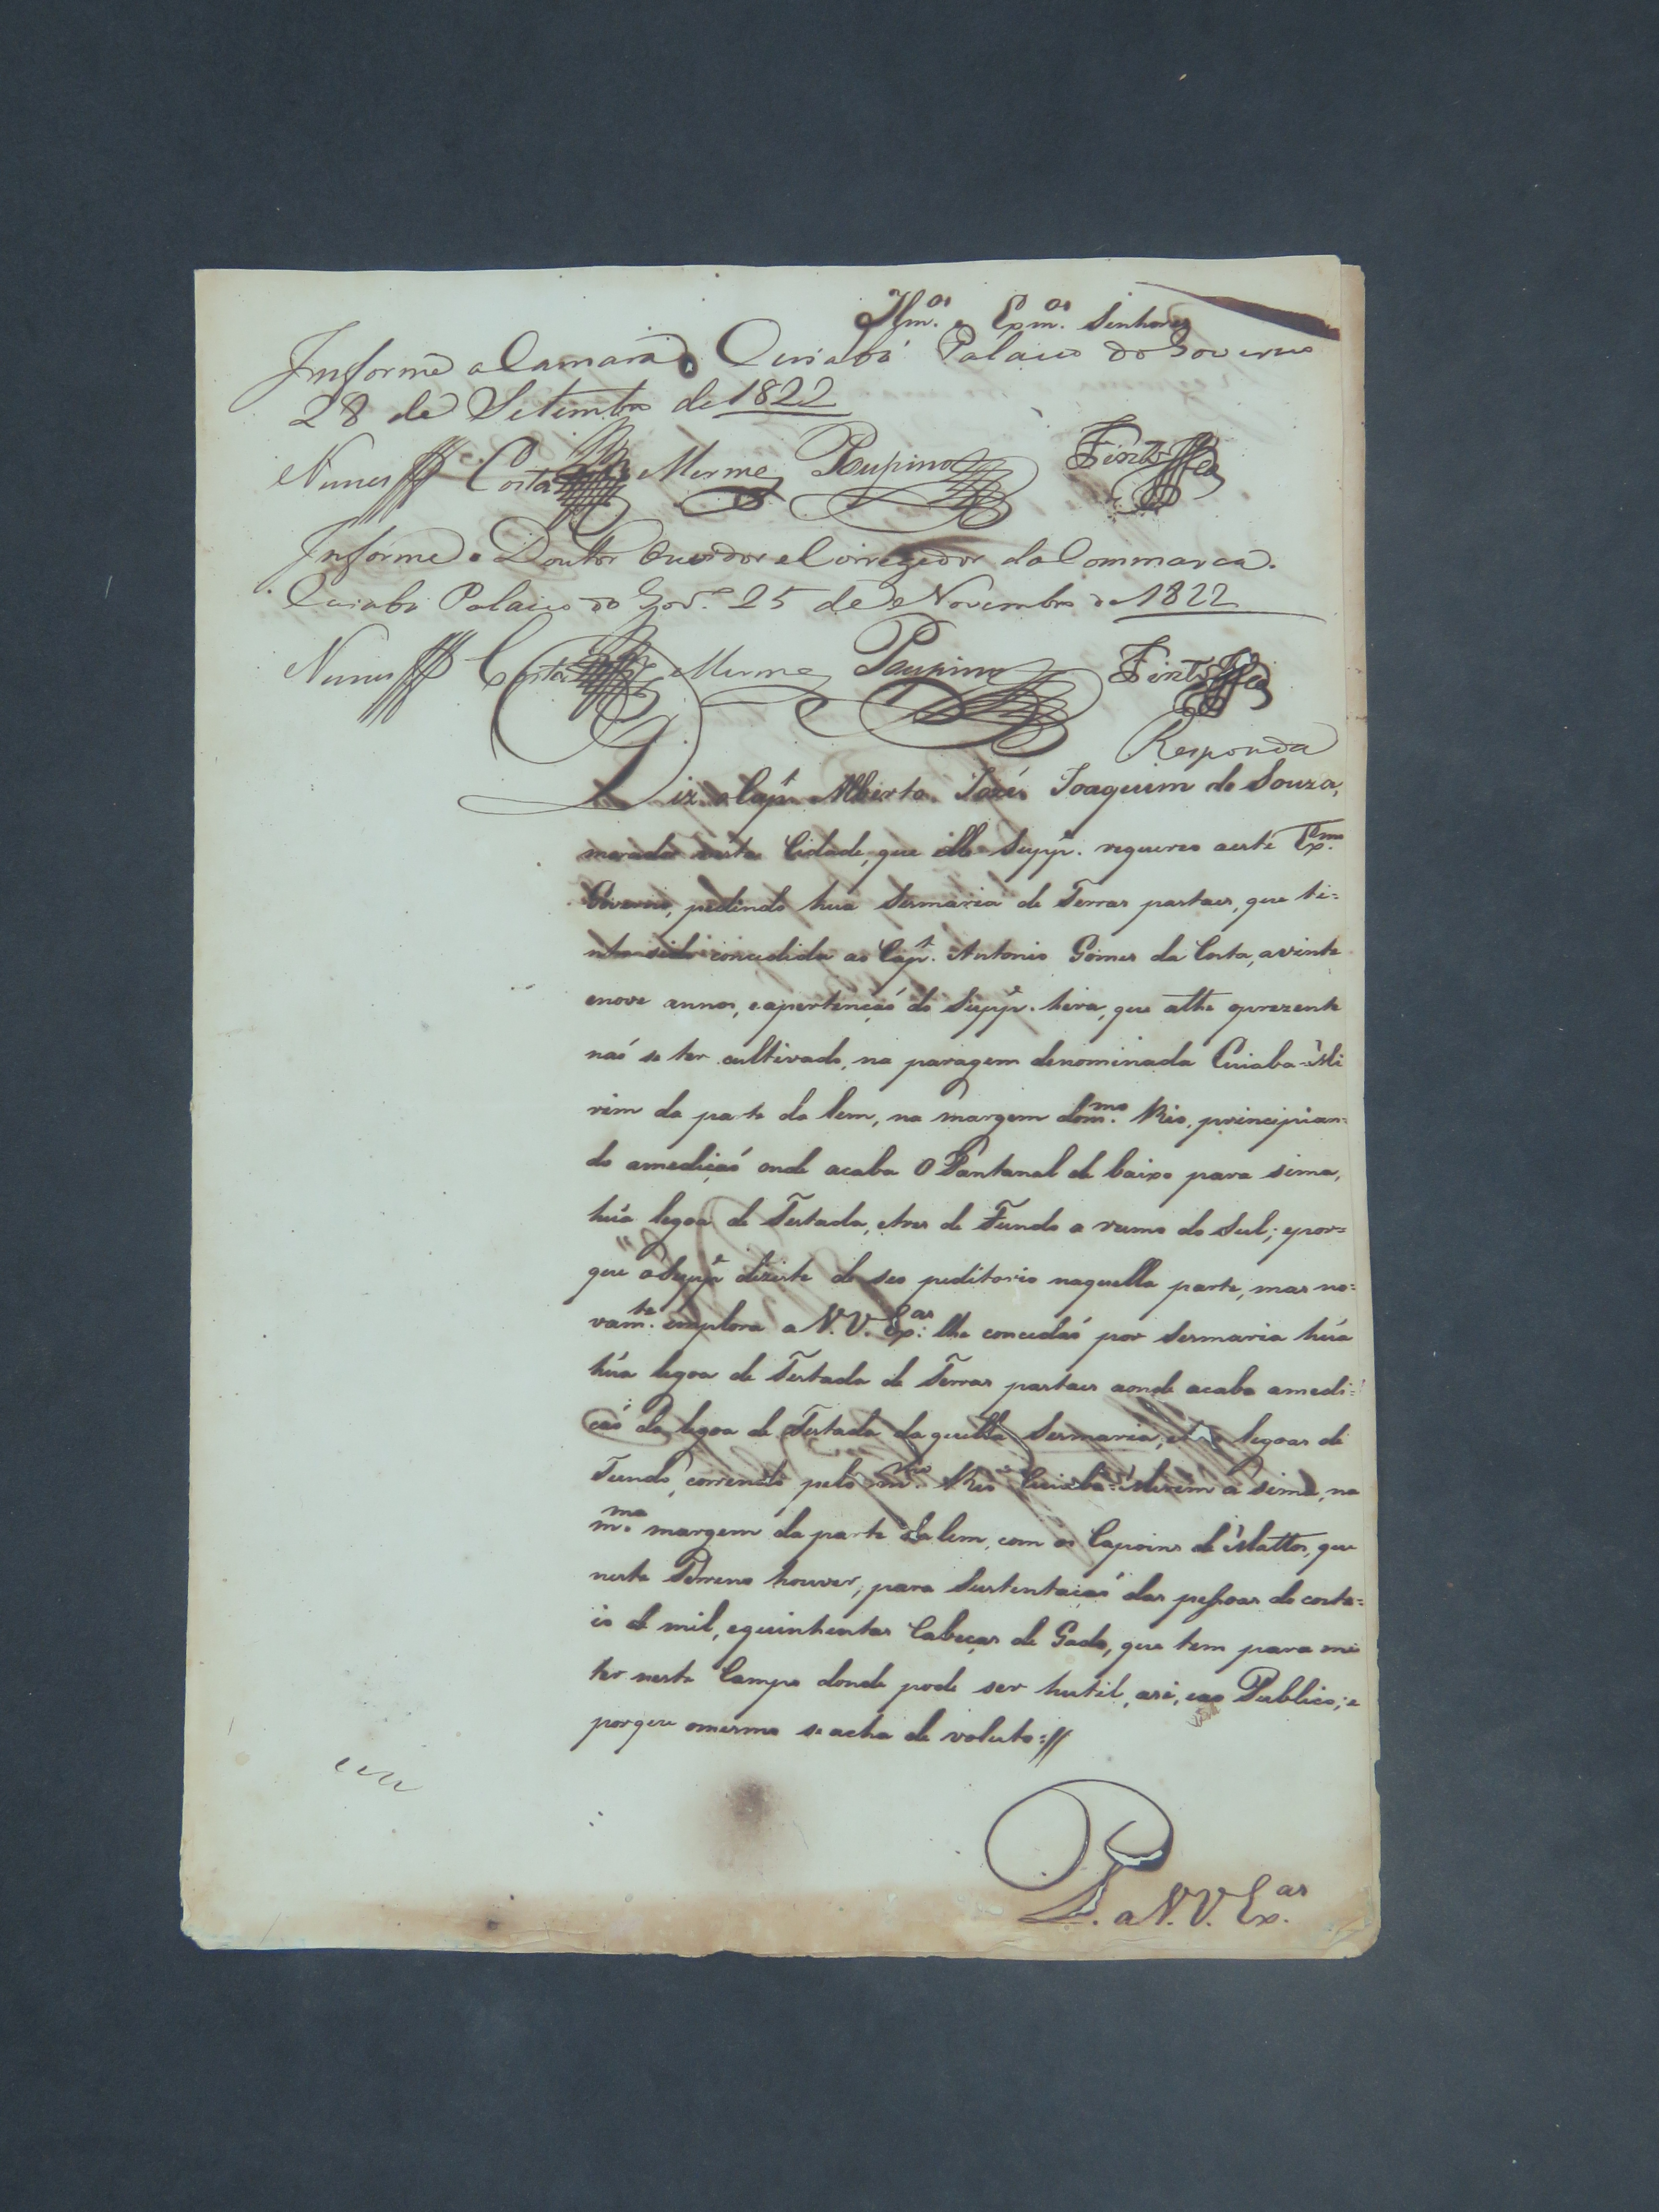 Illm.os e Exm.os Senhores
Informe a Camara Cuiabá Palacio do Governo
28 de Setembro de 1822
Nunes Costa Merme Poupino Pinto
Informe o Douttor Ouvidor e Corregedor da Commarca.
Cuiabá Palacio do Gov.º 25 de Novembro de 1822
Nunes Costa Merme Poupino Pinto
Responda
Diz o Cap.m Alberto José Joaquim de Souza,
morador nesta Cidade, que elle Supp.e requereo aeste Ex.mo
Governo, pedindo hua Sesmaria de Terras pastaes, que ti=
nha sido concedida ao Cap.m Antonio Gomes da Costa, avinte
enove annos, eapertençaó do Supp.e hera, que athe oprezente
naó se ter cultivado, na paragem denominada Cuiaba-Mi
rim da parte da lem, na margem dom.mo Rio, principian=
do amediçaó onde acaba o Pantanal de baixo para sima,
hua legoa de Testada, etres de Fundo a rumo do Sul; epor=
que o Supp.e deziste de seo peditorio naquella parte, mas no=
vam.te emplora a N. V. Ex.as lhe concedaó por Sesmaria hua
hua legoa de Testada de Terras pastaes aonde acaba amedi=
çaó da legoa de Testada daquella Sesmaria, legoas de
Fundo, correndo pelo m.mo Rio Cuiaba=Mirim a sima, na
m.ma margem da parte dalem, com os Capoins de Mattos, que
neste Terreno houver, para Sustentaçaó das pessoas do coste=
io de mil, equinhentas Cabeças de Gado, que tem para me
ter neste Campo donde pode ser hutil, asi, eao Publico; e
porque omesmo se acha de voluto=//
P. a N. V. Ex.as